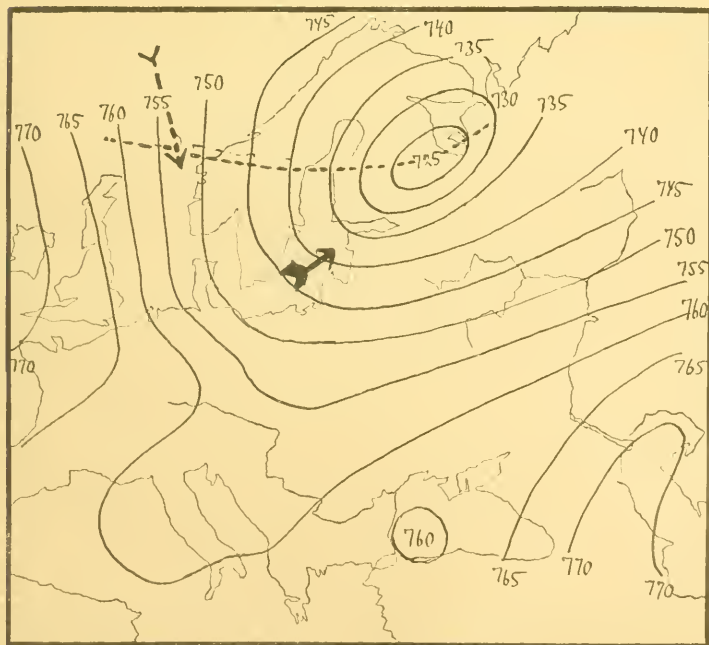 745
740
735
730
735
770
765
760
755
750
725
740
745
750
755
760
770
765
760
765
770
770